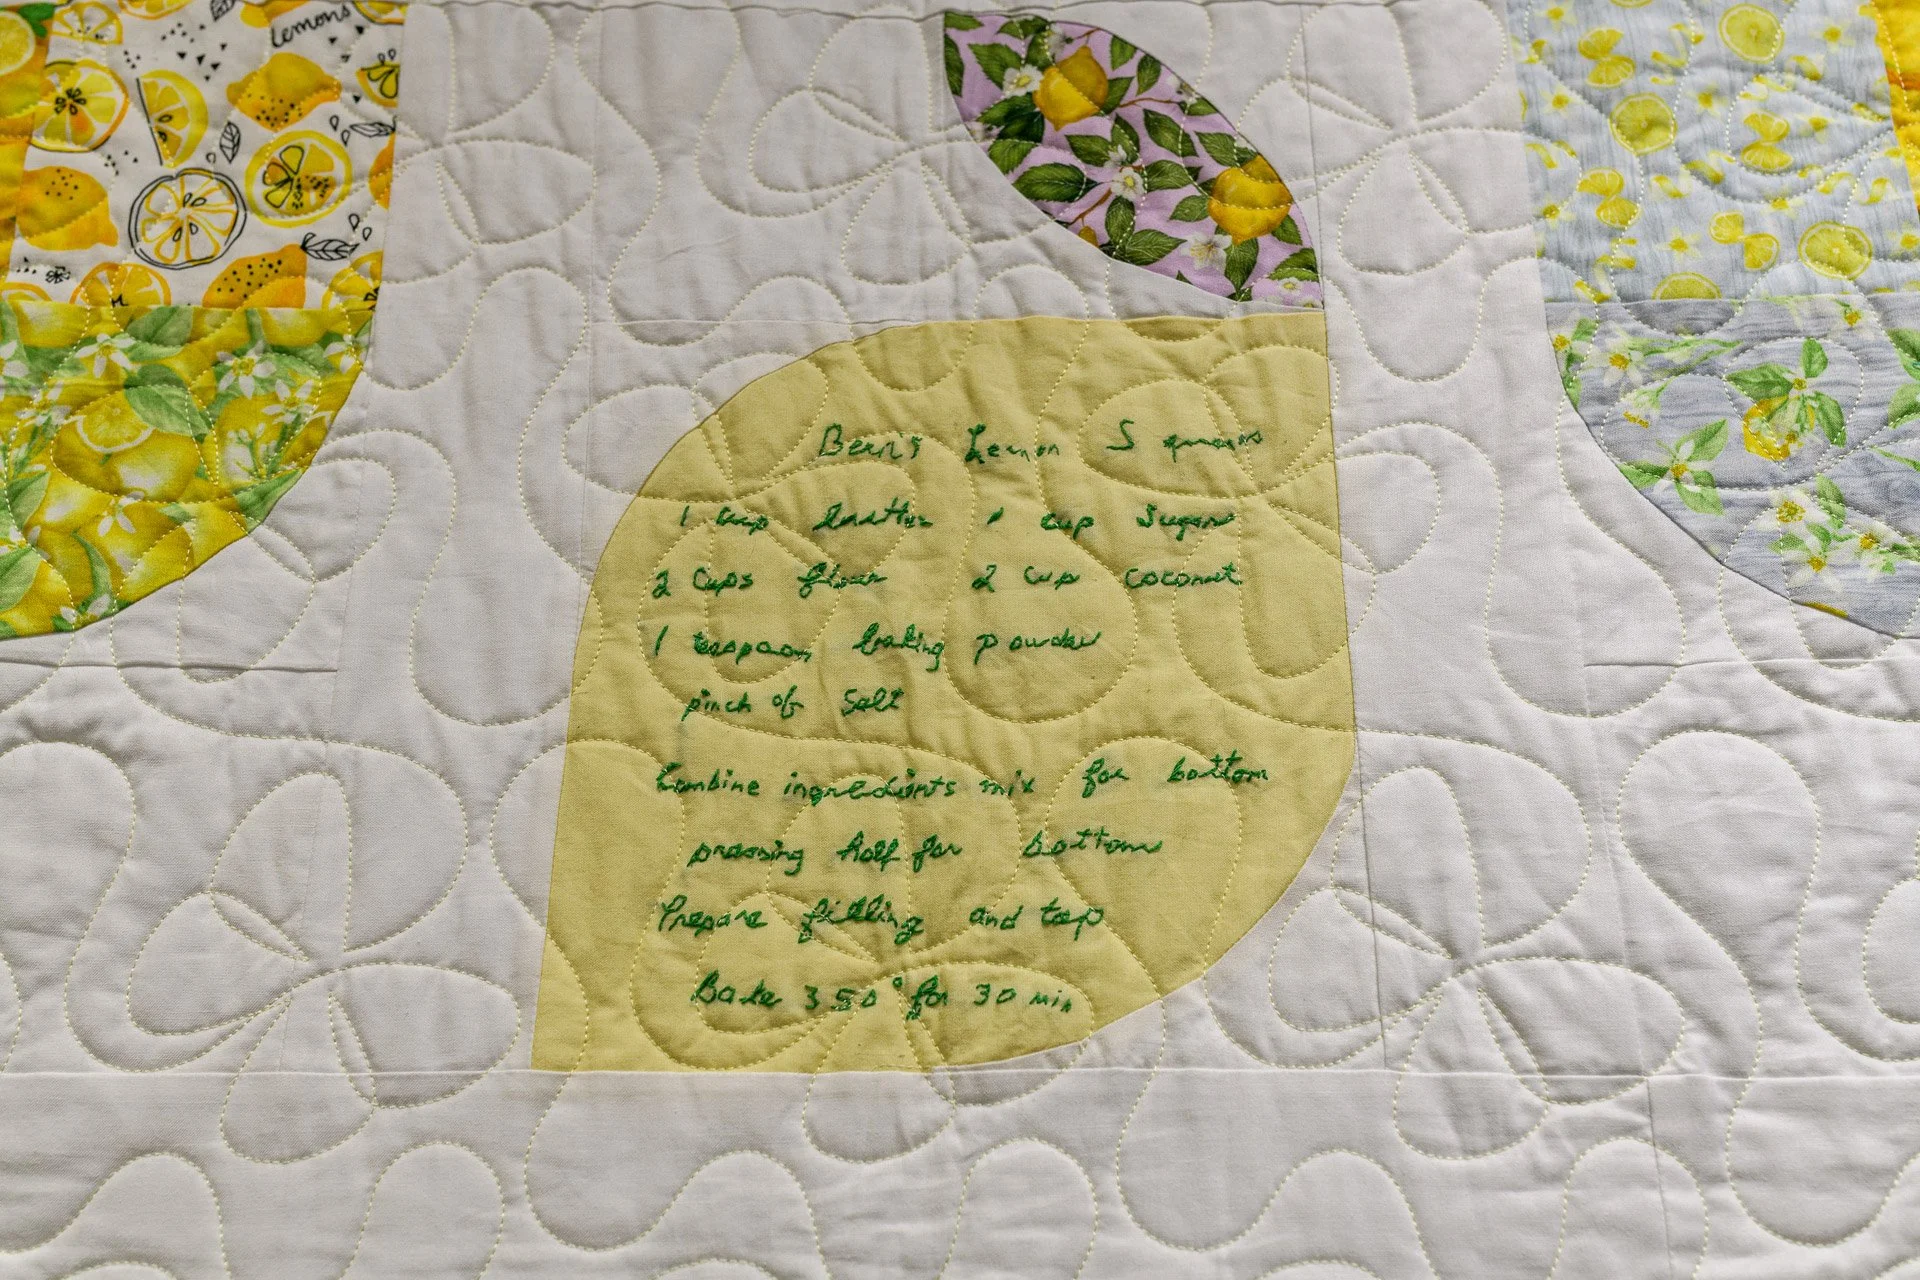 lemons
Bern's Lemon Squares
1 cup butter 1 cup Sugar
2 Cups flour 2 cup coconut
1 teaspoon baking powder
pinch of Salt
Combine ingredients mix for bottom
pressing half for bottom
Prepare filling and top
Bake 350° for 30 min